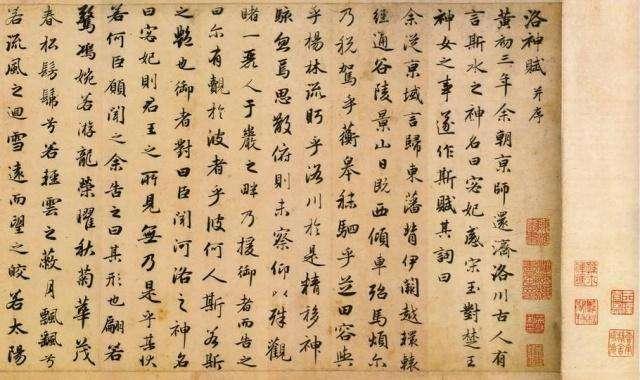 洛神賦 并序
黃初三年余朝京師還濟洛川古人有
言斯水之神名曰宓妃感宋玉對楚王
神女之事遂作斯賦其詞曰
余從京域言歸東藩背伊闕越轘轅
經通谷陵景山日既西傾車殆馬煩尔
乃稅駕乎蘅皋秣駟乎芝田容與
乎楊林流眄乎洛川於是精移神
駭忽焉思散俯則未察仰以殊觀
睹一麗人于巖之畔乃援御者而告之
曰尔有覿於彼者乎彼何人斯若斯
之艷也御者對曰臣聞河洛之神名
曰宓妃則君王之所見無乃是乎其狀
若何臣願聞之余告之曰其形也翩若
驚鴻婉若游龍榮曜秋菊華茂
春松髣髴兮若輕雲之蔽月飄飄兮
若流風之迴雪遠而望之皎若太陽